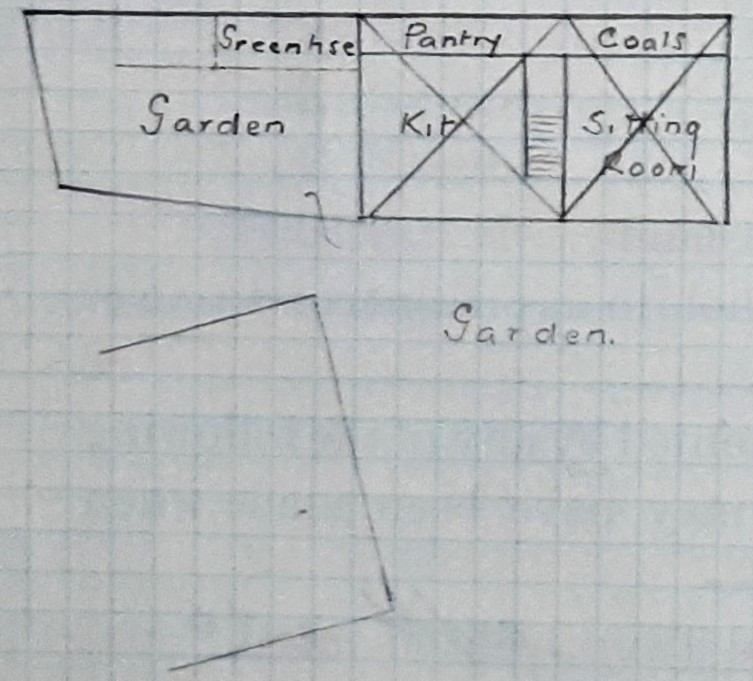 Greenhse
Pantry
Coals
Garden
Kit
Sitting
Room
Garden.